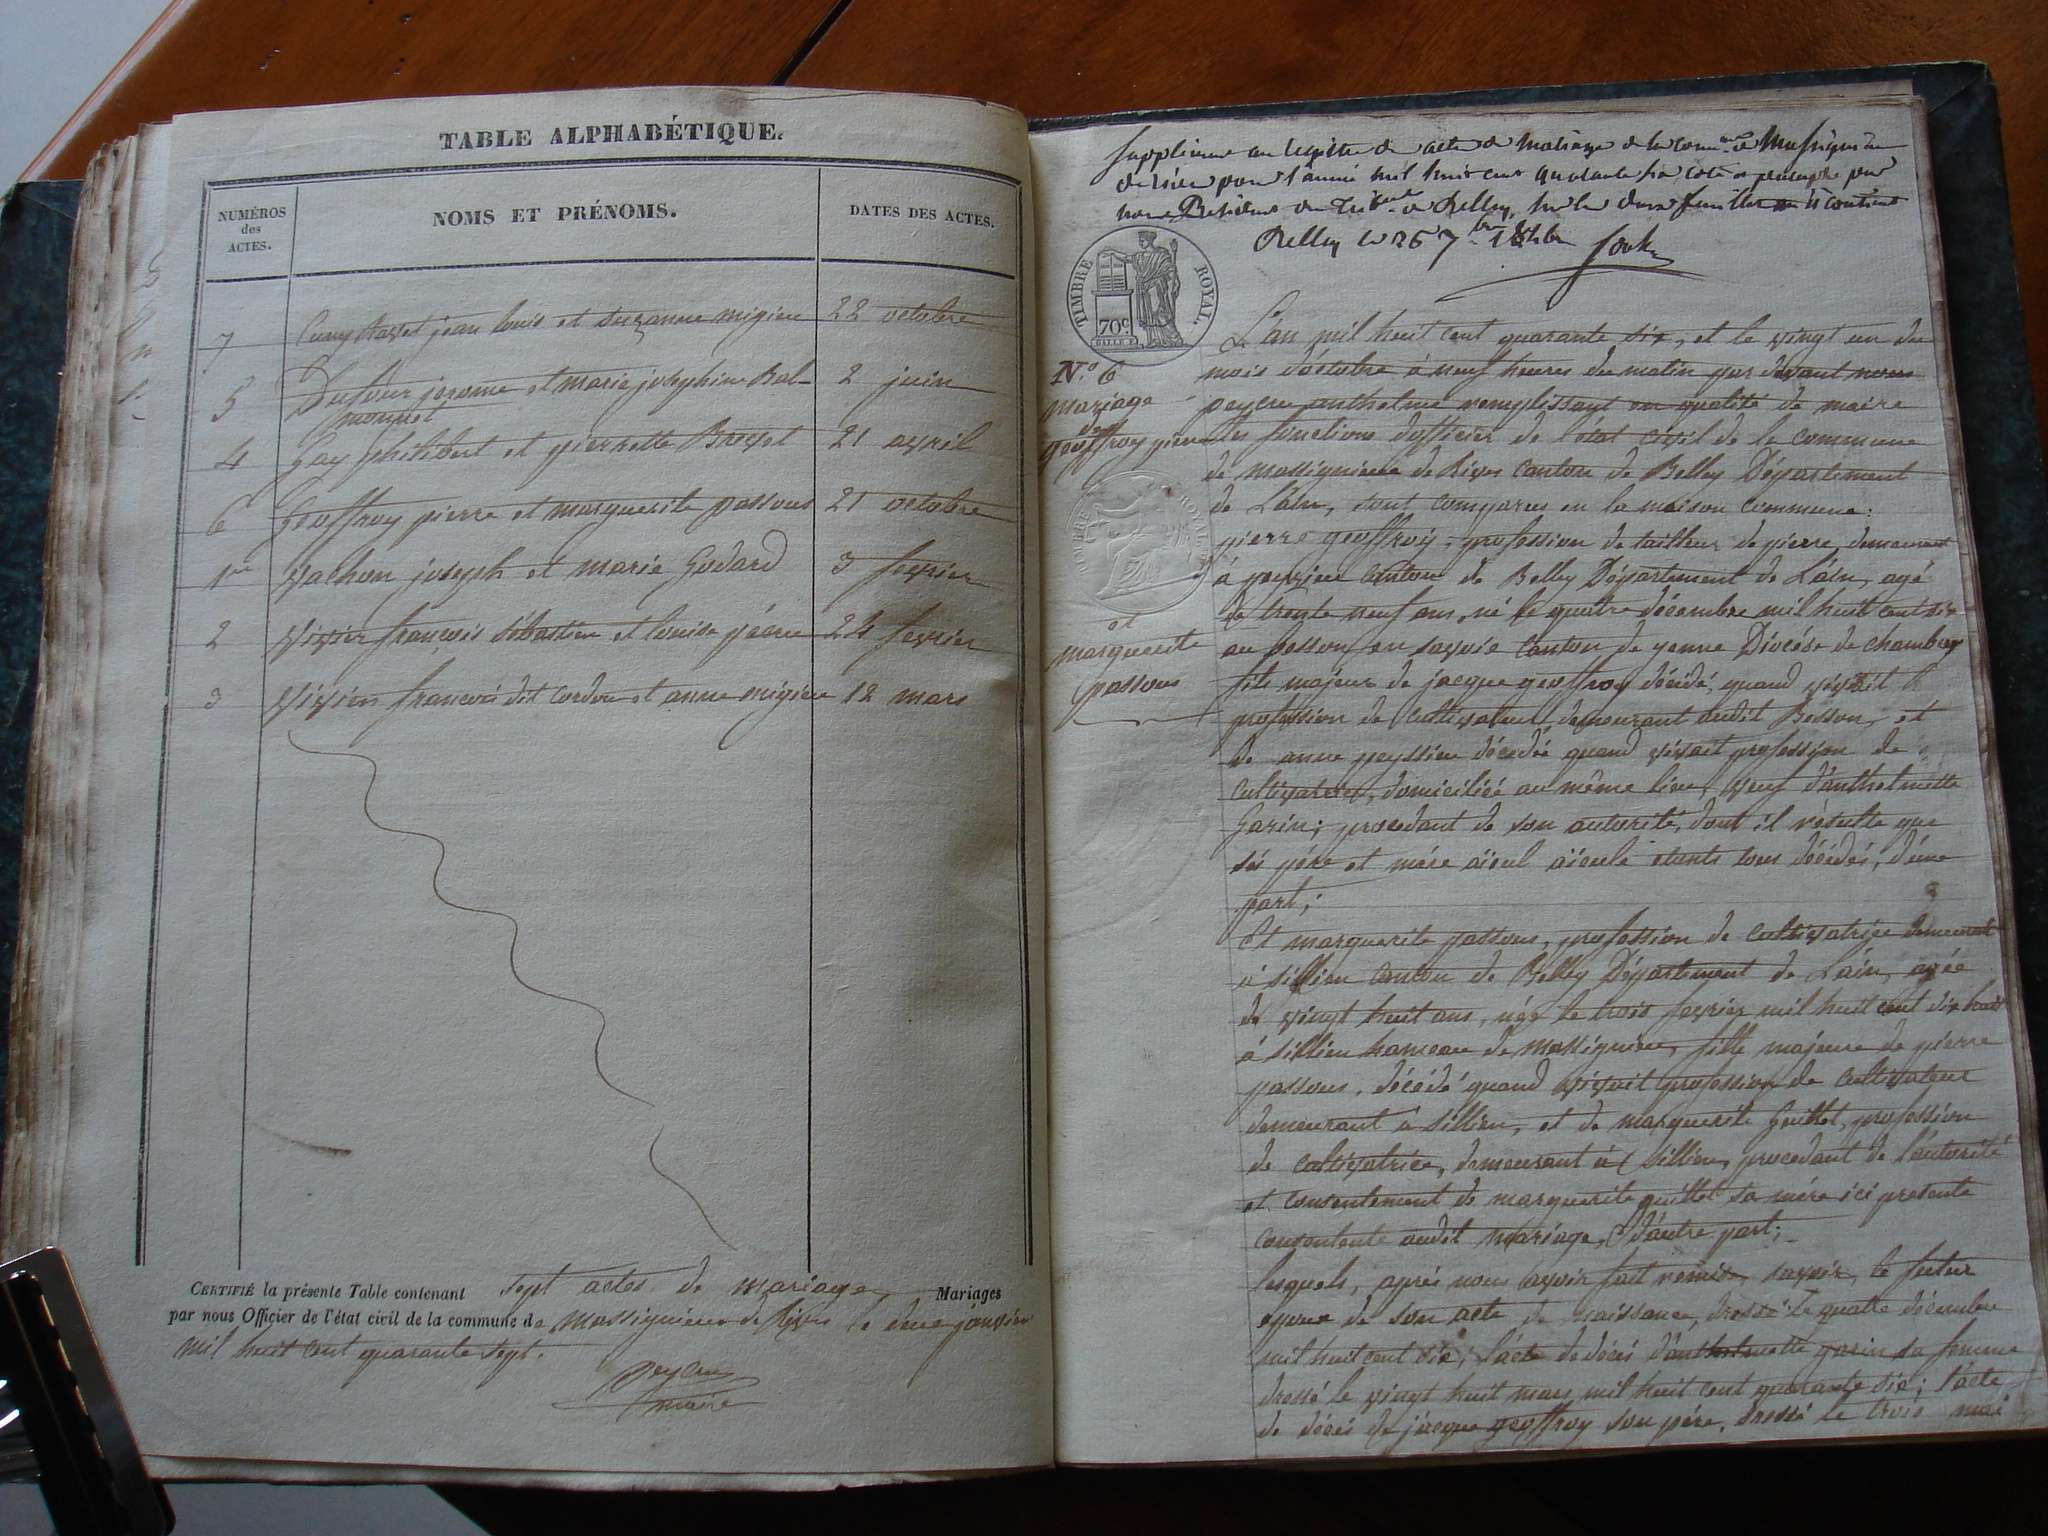 TABLE ALPHABÉTIQUE.
NUMÉROS des ACTES.
NOMS ET PRÉNOMS.
DATES DES ACTES.
7 jean louis et suzanne migieu 22 octobre
5 Dufour jerome et marie josephine Bal-
monnet 2 juin
4 Gay philibert et pierrette Breyet 21 avril
6 Geoffroy pierre et marguerite passous 21 octobre
1er vachon joseph et marie Godard 3 fevrier
2 vivier françois sébastien et louise 24 fevrier
3 vivien francois dit cordon et anne migieu 12 mars
CERTIFIÉ la présente Table contenant sept actes de mariage Mariages
par nous Officier de l'état civil de la commune de massignieu de Rives le janvier
mil huit cent quarante sept.
peycru
maire
Supplément au registre de acte de Mariage de la comune de Massignieu
de rives pour l'année mil huit cent quarante six coté et paraphé par
nous Président du de Belley, sur les deux feuilles
Belley le 26 7bre
TIMBRE ROYAL.
70c
L'an mil huit cent quarante six, et le vingt un du
N.o 6
mois d'octobre à neuf heures du matin par devant nous
mariage
peycru anthelme remplissant en qualité de maire
de
geoffroy pierre
les fonctions d'officier de l'état civil de la commune
de massignieu de Rives canton de Belley Département
de L'ain, sont comparus en la maison commune:
pierre geoffroy, profession de tailleur de pierre, demeurant
à peyzieu canton de Belley Département de L'ain, agé
de trente neuf ans, né le quatre décembre mil huit cent six
et
marguerite
passous
au besson en savoie canton de yenne Diocése de chambery
fils majeur de jacque geoffroy décédé, quand vivait
profession de cultivateur, demeurant audit Besson, et
de anne peyssieu décedée quand vivait profession de
cultivatrice, domiciliée au même lieu, veuf d'anthelmette
Garin; procedant de son autorité, dont il résulte que
ses père et mère aïeul aïeule etants tous décédés, d'une
part;
Et marguerite passous, profession de cultivatrice demeurant
à sillieu canton de Belley Département de L'ain, agée
de vingt huit ans, née le trois fevrier mil huit cent dix huit
à sillieu hameau de massignieu, fille majeure de pierre
passous, décédé quand vivait profession de cultivateur
demeurant à sillieu, et de marguerite Guillet, profession
de cultivatrice, demeurant à sillieu, procedant de l'autorité
et consentement de marguerite guillet sa mère ici presente
consentente audit mariage, d'autre part;
lesquels, après nous avoir fait remise, savoir, le futur
epoux de son acte de naissance, dressé le quatre décembre
mil huit cent six; l'acte de décés d'anthelmette garin sa femme
dressé le vingt huit mars mil huit cent quarante six; l'acte
de décés de jacque geoffroy son père, dressé le trois mai